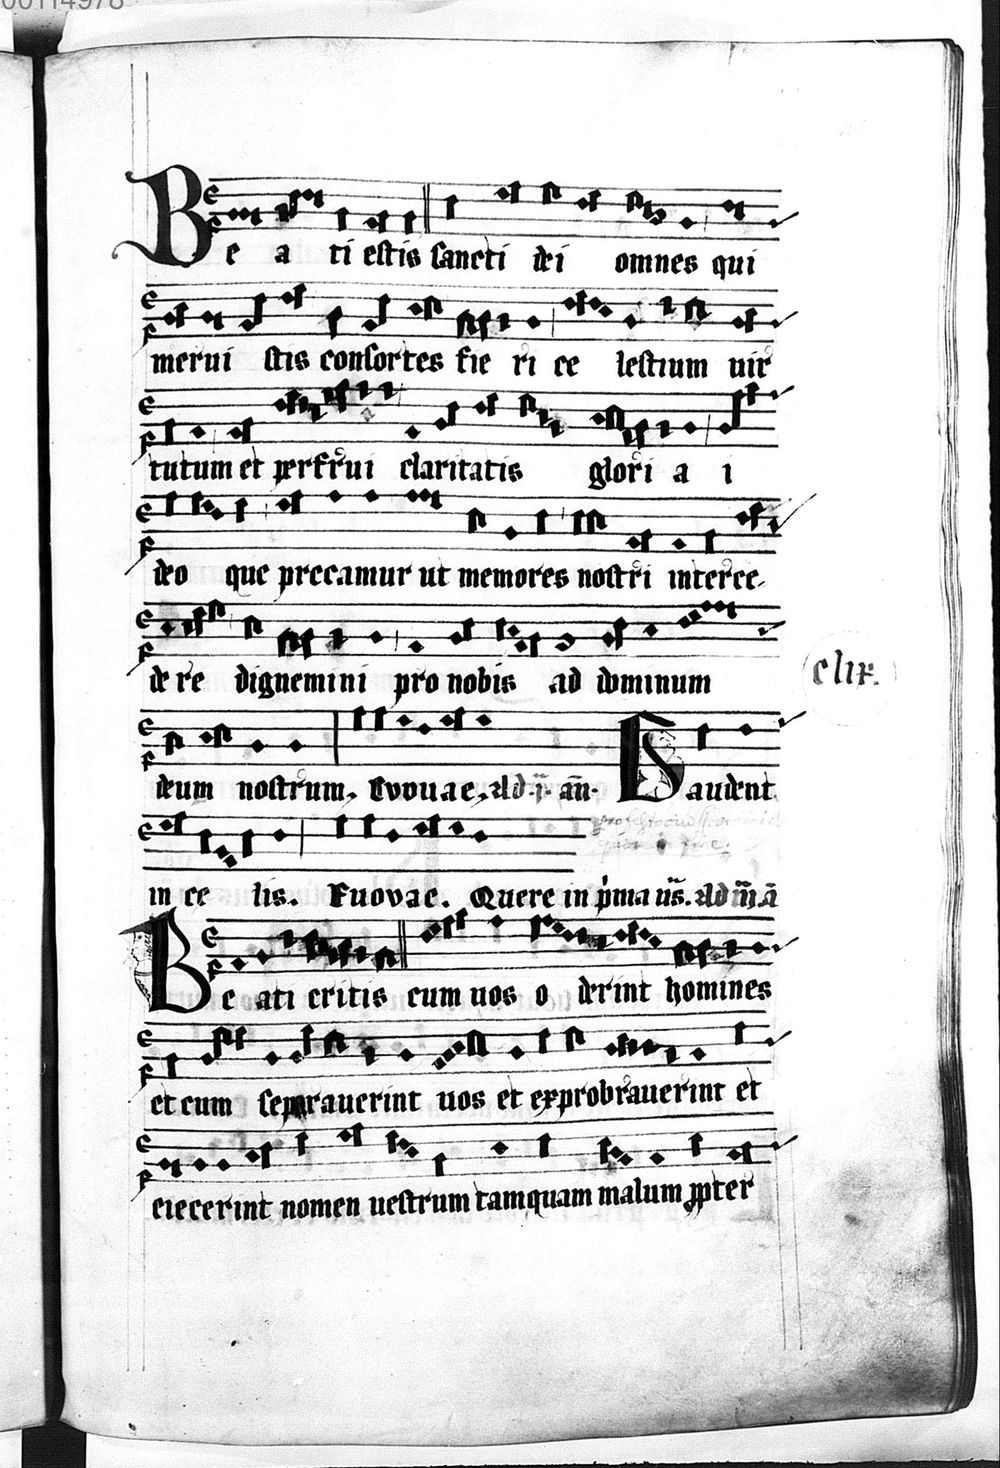 00114978
Be a ti estis sancti dei omnes qui
merui stis consortes fie ri ce lestium uir
tutum et perfrui claritatis glori a i
deo que precamur ut memores nostri interce
de re dignemini pro nobis ad dominum
clix.
deum nostrum. Evouae. Ad .i. an. Gaudent
in ce lis. Euovae. Quere in pma us. Ad m. a
Be ati eritis cum uos o derint homines
et cum separauerint uos et exprobrauerint et
eiecerint nomen uestrum tamquam malum ppter